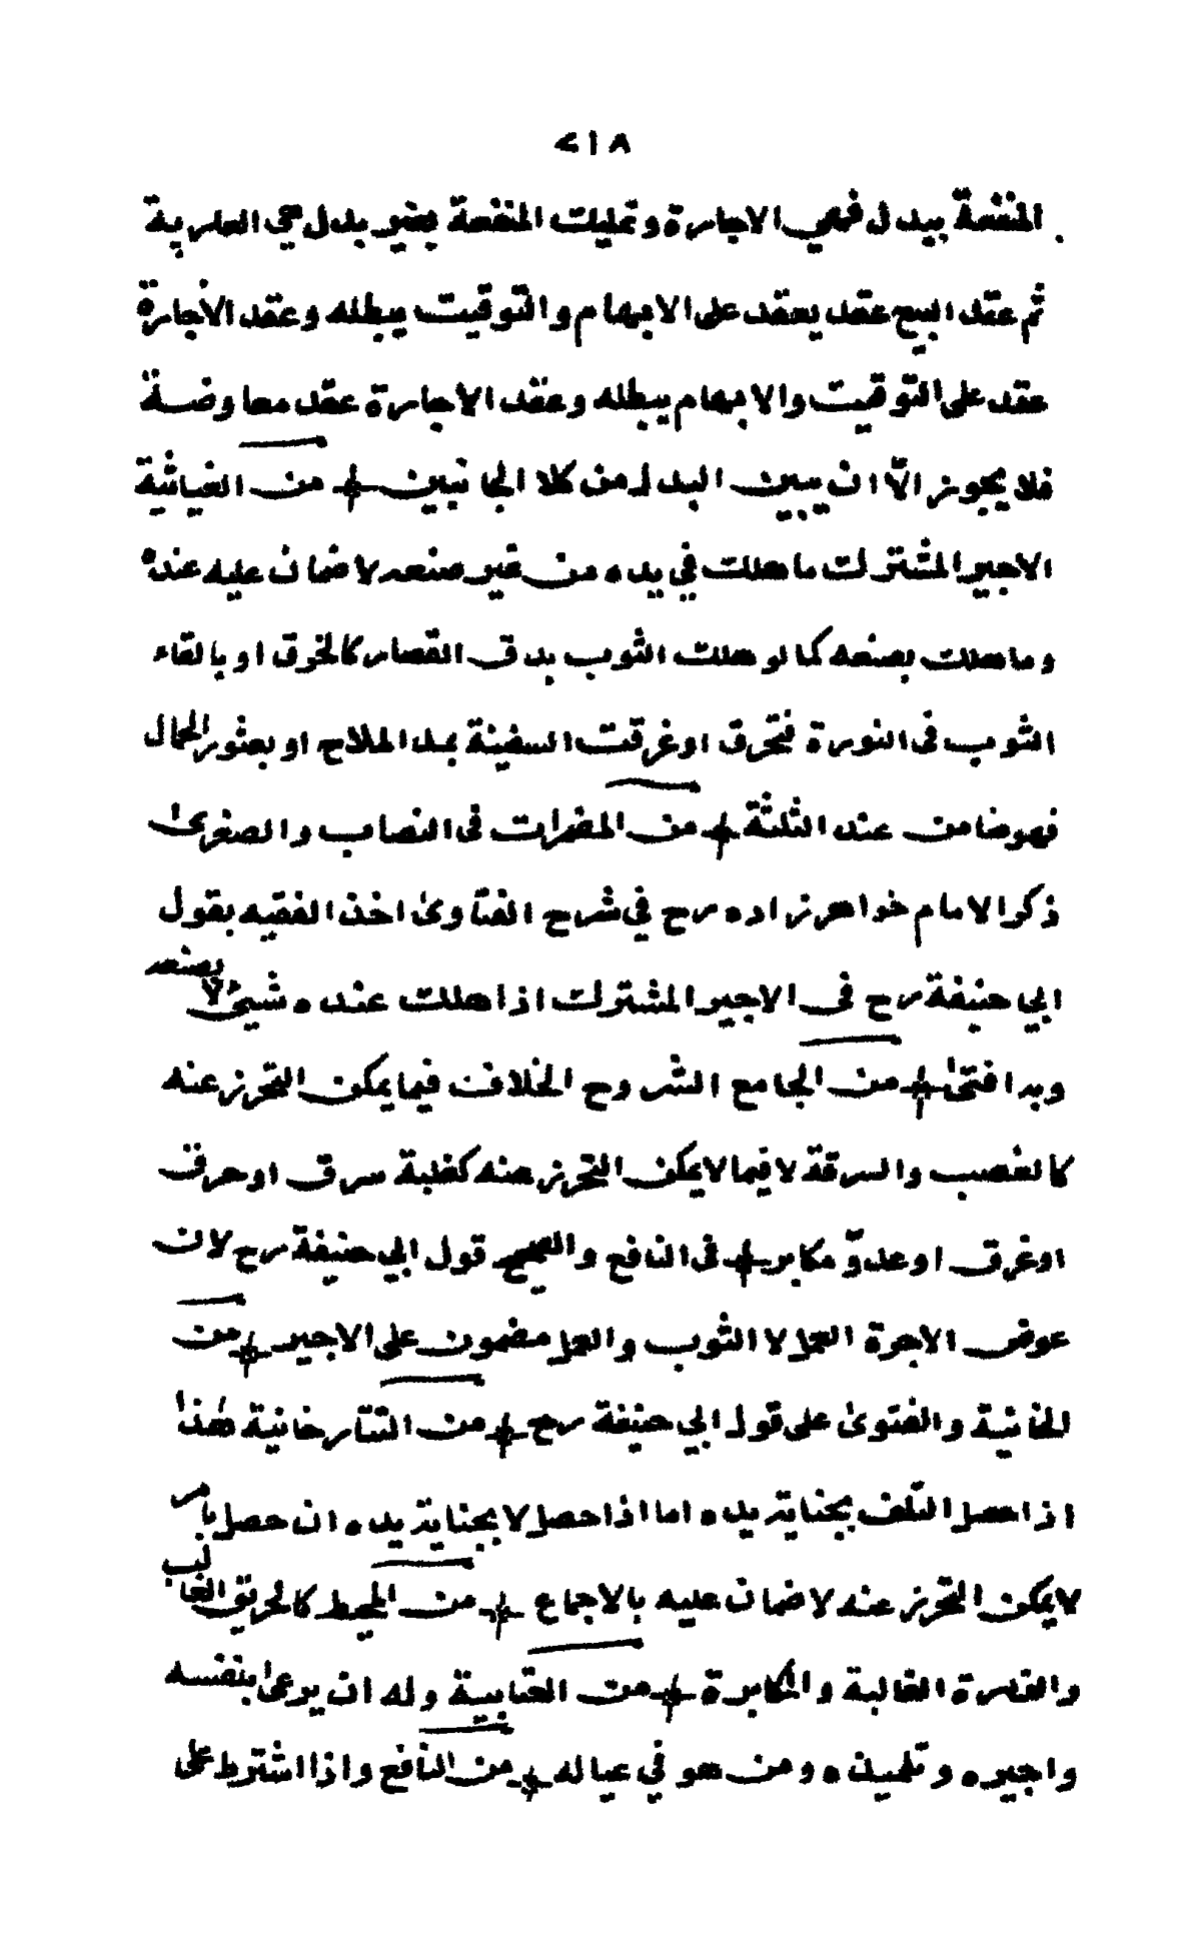 ٢١٨
المنفعة ببدل فهي الاجارة وتمليك المنفعة بغير بدل هي العارية
ثم عقد البيع عقد يعقد على الابهام والتوقيت يبطله وعقد الاجارة
عقد على التوقيت والابهام يبطله وعقد الاجارة عقد معاوضة
فلا يجوز الّا ان يبين البدل من كلا الجانبين + من الغياثية
الاجير المشترك ما هلك في يده من غير صنعه لا ضمان عليه عنده
وما هلك بصنعه كما لو هلك الثوب بدق القصار كالخرق او بالقاء
الثوب فى النورة فتحرق او غرقت السفينة بمد الملاح او بعثور الحمال
فهو ضامن عند الثلثة + من المضمرات فى النصاب والصغرى
ذكر الامام خواهر زاده رح في شرح الفتاوى اخذ الفقيه بقول
ابي حنيفة رح فى الاجير المشترك اذا هلك عنده شيئ لا بصنعه
وبه افتى + من الجامع الشروح الخلاف فيما يمكن التحرز عنه
كالغصب والسرقة لا فيما لا يمكن التحرز عنه كغلبة سرق او حرق
او غرق او عدوّ مكابر + فى النافع والصحيح قول ابي حنيفة رح لان
عوض الاجرة العمل لا الثوب والعمل مضمون على الاجير + من
الخانية والفتوى على قول ابي حنيفة رح + من التتارخانية هذا
اذا حصل التلف بجناية يده اما اذا حصل لا بجناية يده ان حصل بامر
لا يمكن التحرز عنه لا ضمان عليه بالاجماع + من المحيط كالحريق الغالب
والغارة الغالبة والمكابرة + من العتابية وله ان يرعى بنفسه
واجيره وتلميذه ومن هو في عياله + من النافع واذا اشترط على